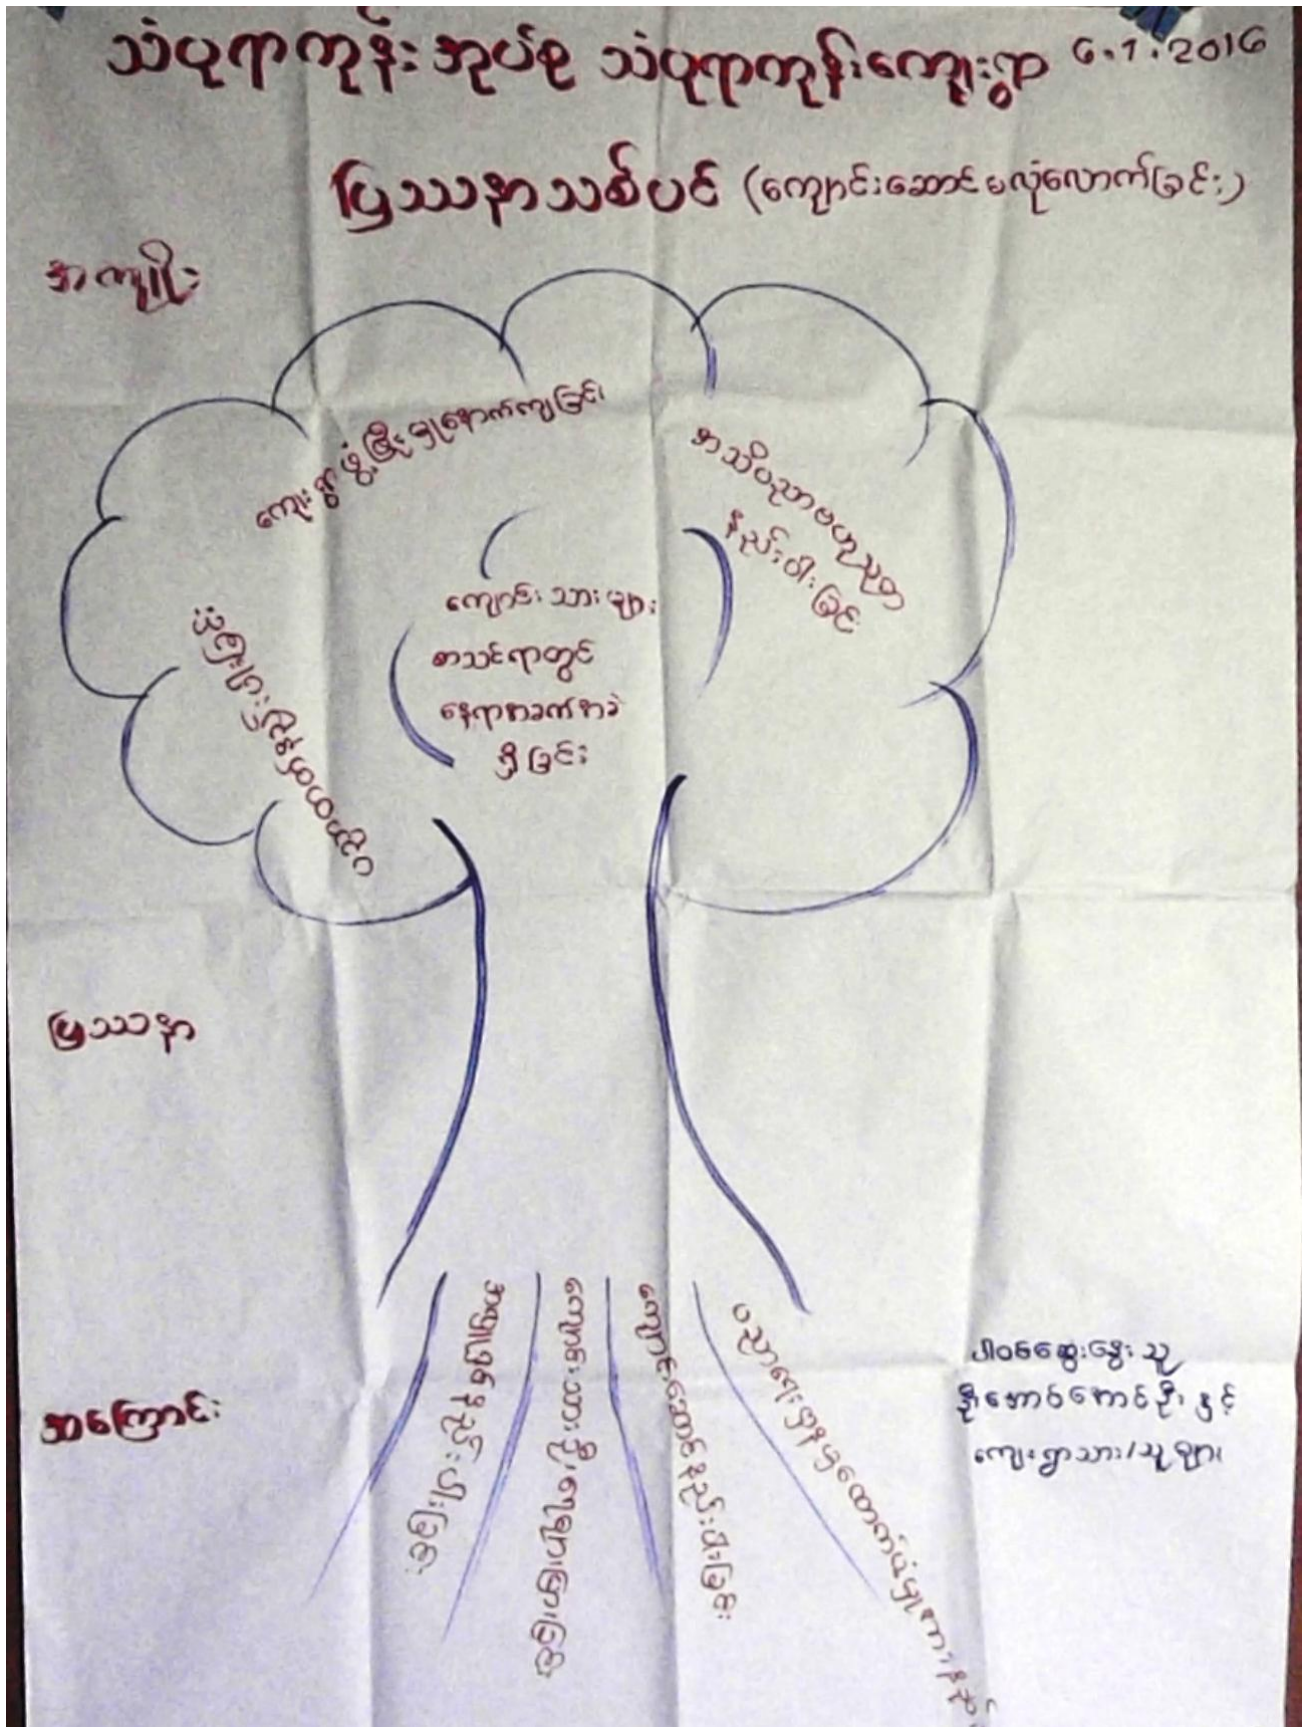 သံပုရာကုန်းအုပ်စု သံပုရာကုန်းကျေးရွာ 6.1.2016
ပြဿနာသစ်ပင် (ကျောင်းဆောင်မလုံလောက်ခြင်း)
အကျိုး
ကျေးရွာဖွံ့ဖြိုးမှုနောက်ကျခြင်း
အသိပညာဗဟုသုတ
နည်းပါးခြင်း
ကျောင်းသားများ
စာသင်ရာတွင်
နေရာအခက်အခဲ
ရှိခြင်း
ပြဿနာ
အကြောင်း
နည်းပါးခြင်း
ကျောင်းသားဦးရေများပြားခြင်း
ကျောင်းဆောင်နည်းပါးခြင်း
ပညာရေးဌာနမှထောက်ပံ့မှုအားနည်း
ပါဝင်ဆွေးနွေးသူ
ဦးအောင်အောင်ဦး နှင့်
ကျေးရွာသား/သူများ